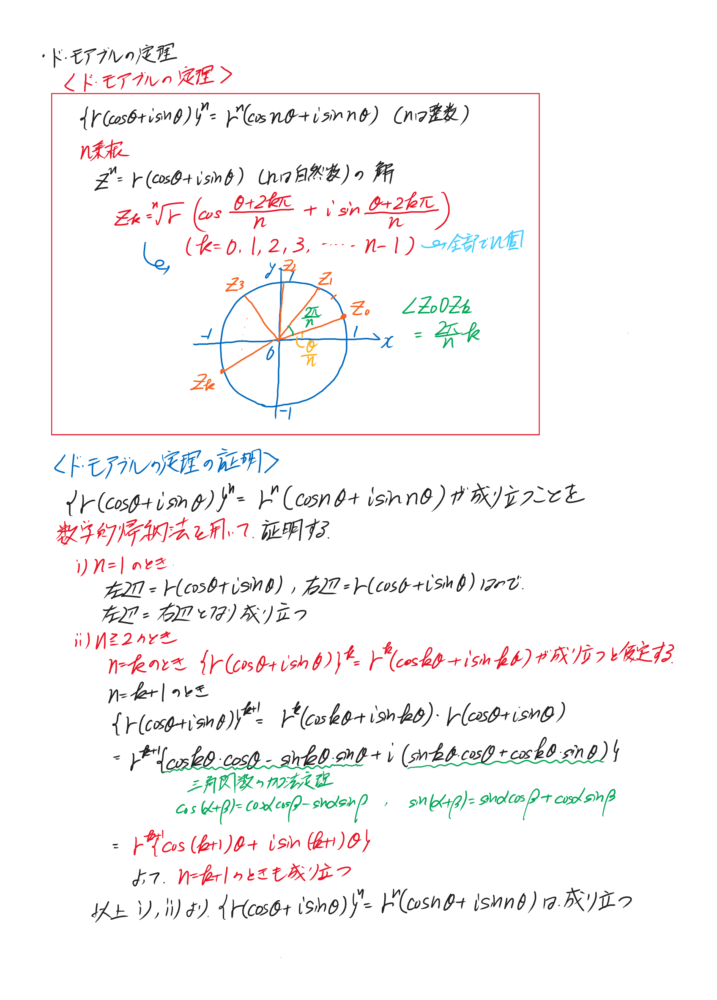 ・ド・モアブルの定理
<ド・モアブルの定理>
{r(cosθ+isinθ)}ⁿ = rⁿ(cos nθ + i sin nθ) (nは整数)
n乗根
Zⁿ = r(cosθ+isinθ) (nは自然数)の解
Zk = ⁿ√r (cos (θ+2kπ)/n + i sin (θ+2kπ)/n)
(k=0, 1, 2, 3, ‥‥ n-1) → 全部でn個
y
Z₃
Z₁
Z₀
2π/n
θ/n
-1
0
1
x
Zk
-1
∠Z₀OZk
= 2π/n k
<ド・モアブルの定理の証明>
{r(cosθ+isinθ)}ⁿ = rⁿ(cosnθ+isin nθ)が成り立つことを
数学的帰納法を用いて、証明する
i) n=1のとき
左辺=r(cosθ+isinθ), 右辺=r(cosθ+isinθ)なので.
左辺=右辺となり成り立つ
ii) n≧2のとき
n=kのとき {r(cosθ+isinθ)}ᵏ = rᵏ(coskθ+isinkθ)が成り立つと仮定する
n=k+1のとき
{r(cosθ+isinθ)}ᵏ⁺¹ = rᵏ(coskθ+isinkθ)・r(cosθ+isinθ)
= rᵏ⁺¹{coskθ・cosθ - sinkθ・sinθ + i (sinkθ・cosθ + coskθ・sinθ)}
三角関数の加法定理
cos(α+β)=cosαcosβ-sinαsinβ , sin(α+β)=sinαcosβ+cosαsinβ
= rᵏ⁺¹{cos(k+1)θ + isin(k+1)θ}
よって、n=k+1のときも成り立つ
以上 i), ii)より、{r(cosθ+isinθ)}ⁿ = rⁿ(cosnθ+isinnθ)は、成り立つ